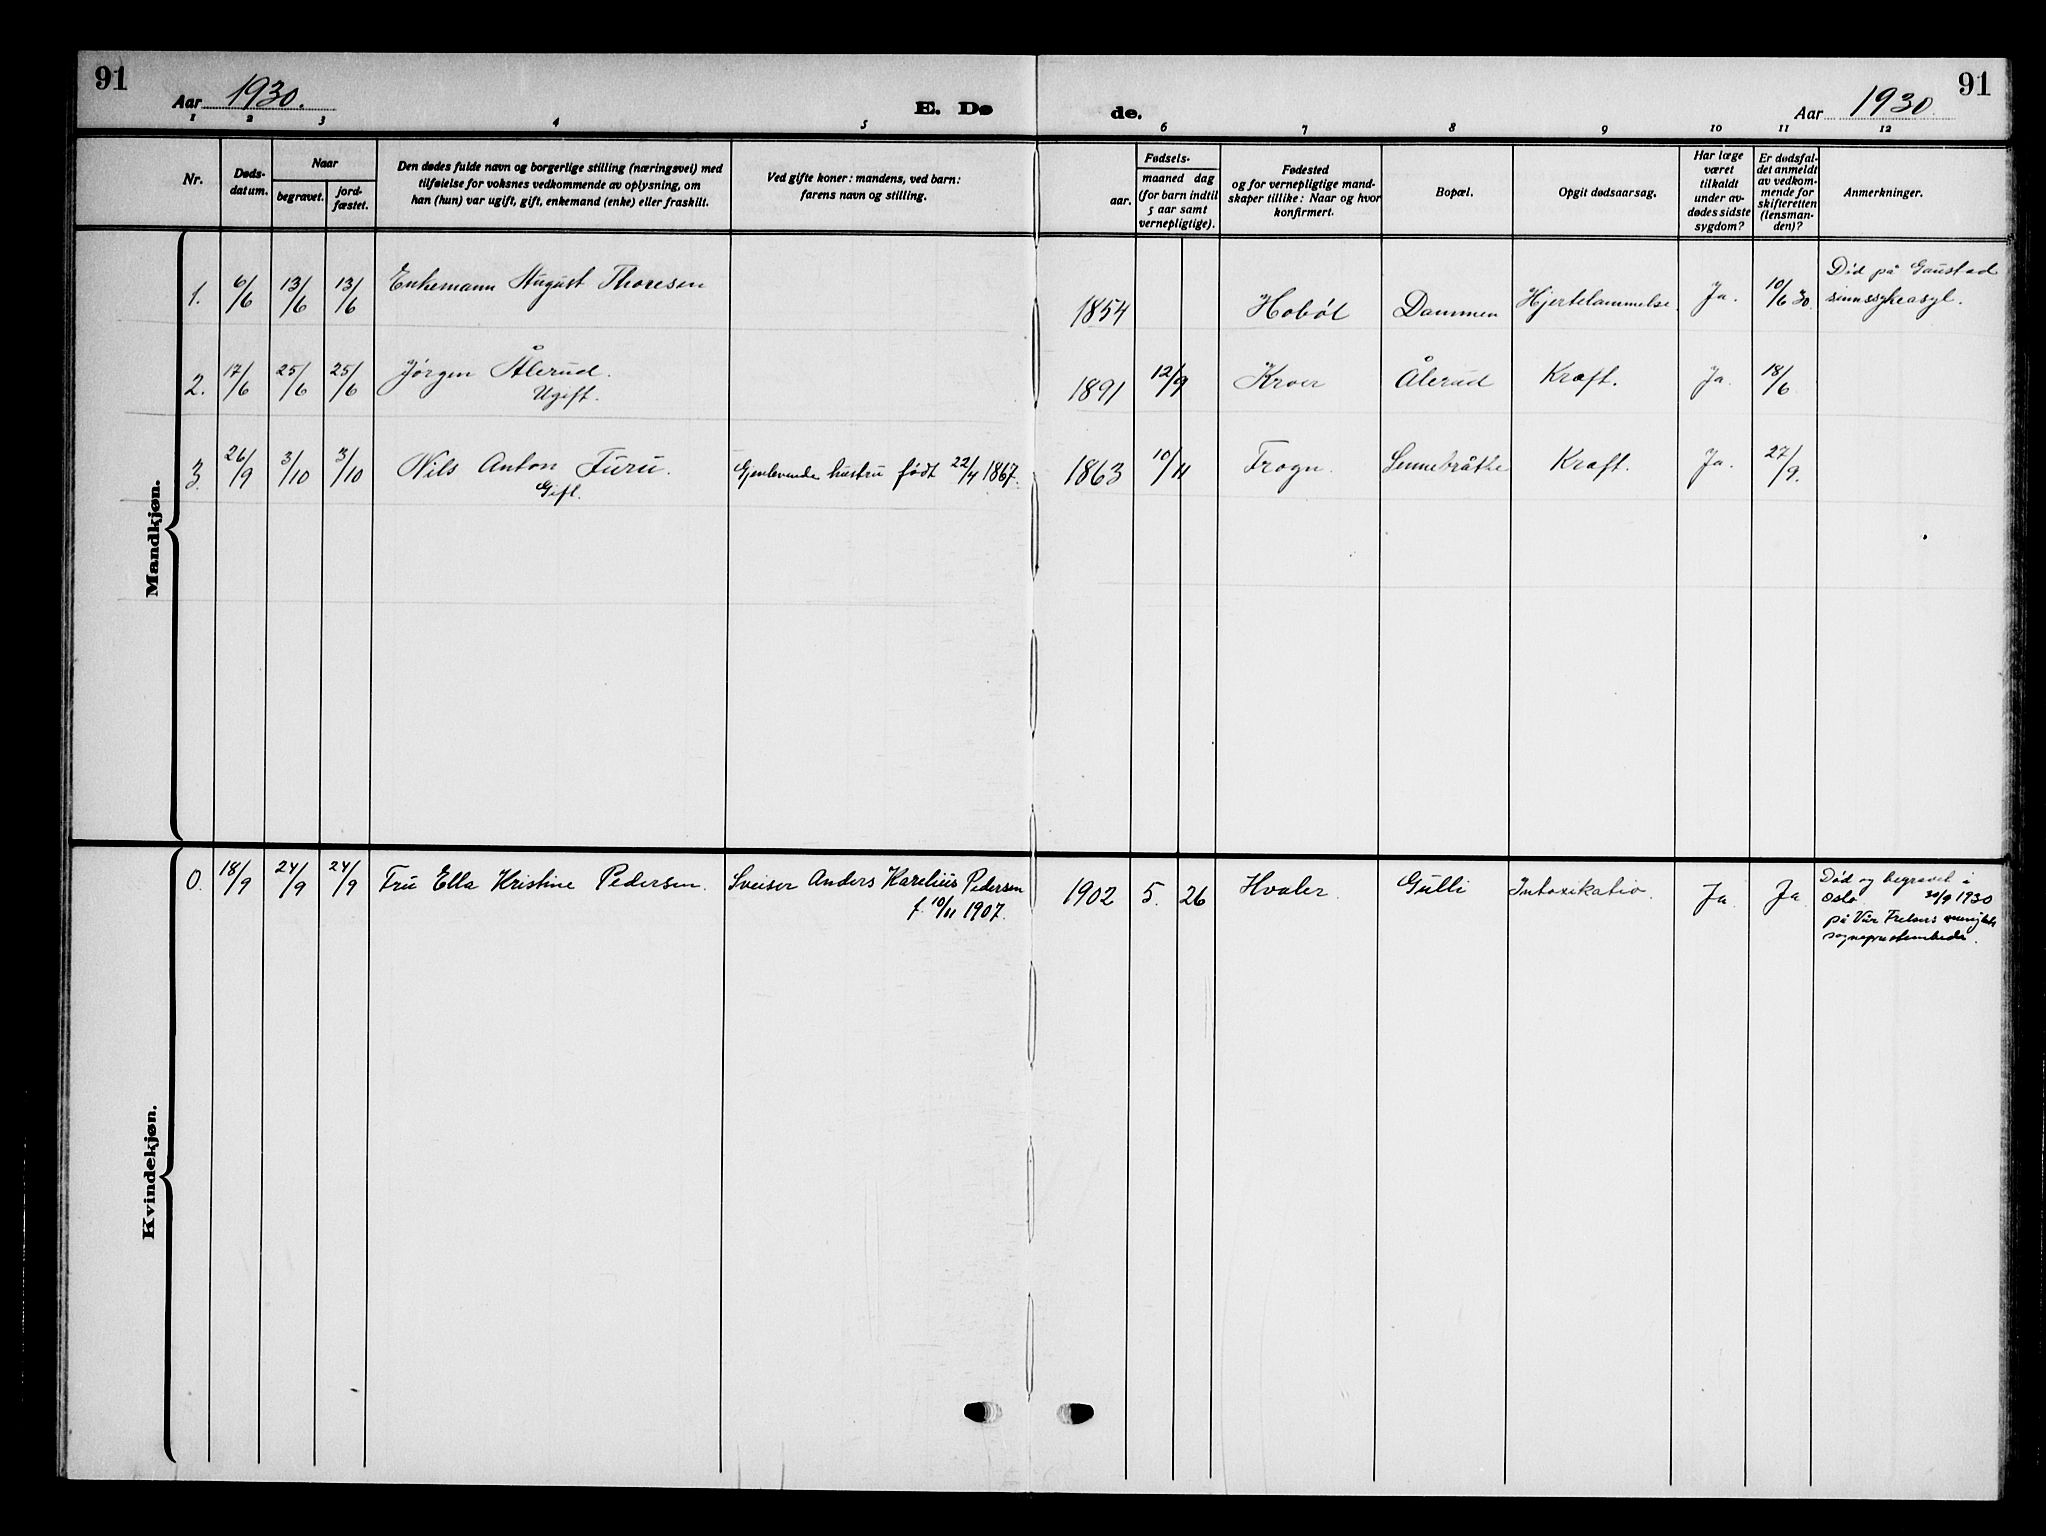 91
Aar 1930.
E. Dø
de.
Aar 1930.
91
1 2 3 4 5 6 7 8 9 10 11 12
Nr.
Døds-
datum.
Naar
begravet.
jord-
fæstet.
Den dødes fulde navn og borgerlige stilling (næringsvei) med
tilføielse for voksnes vedkommende av oplysning, om
han (hun) var ugift, gift, enkemand (enke) eller fraskilt.
Ved gifte koner: mandens, ved barn:
farens navn og stilling.
aar.
Fødsels-
maaned dag
(for barn indtil
5 aar samt
vernepligtige).
Fødested
og for vernepligtige mand-
skaper tillike: Naar og hvor
konfirmert.
Bopæl.
Opgit dødsaarsag.
Har læge
været
tilkaldt
under av-
dødes sidste
sygdom?
Er dødsfal-
det anmeldt
av vedkom-
mende for
skifteretten
(lensman-
den)?
Anmerkninger.
Mandkjøn.
1. 6/6 13/6 13/6 Enkemann August Thoresen 1854 Hobøl Dammen Hjertelammelse. Ja. 10/6 30. Død på Gaustad
sinnssykeasyl.
2. 17/6 25/6 25/6 Jørgen Ålerud. 1891 12/9 Kroer Ålerud Kræft. Ja. 18/6
Ugift.
3. 26/9 3/10 3/10 Nils Anton Furu. Gjenlevende hustru født 22/4 1867. 1863 10/11 Frogn. Kræft. Ja. 27/9.
Gift.
Kvindekjøn.
0. 18/9 24/9 24/9 Fru Ella Kristine Pedersen. Sveiser Anders Karelius Pedersen 1902 5. 26 Hvaler. Gulli Intoxikatio. Ja Ja Død og begravet i
f. 10/11 1907.
Oslo 30/9 1930
på Vår Frelsers menighets
sogneprestembede.